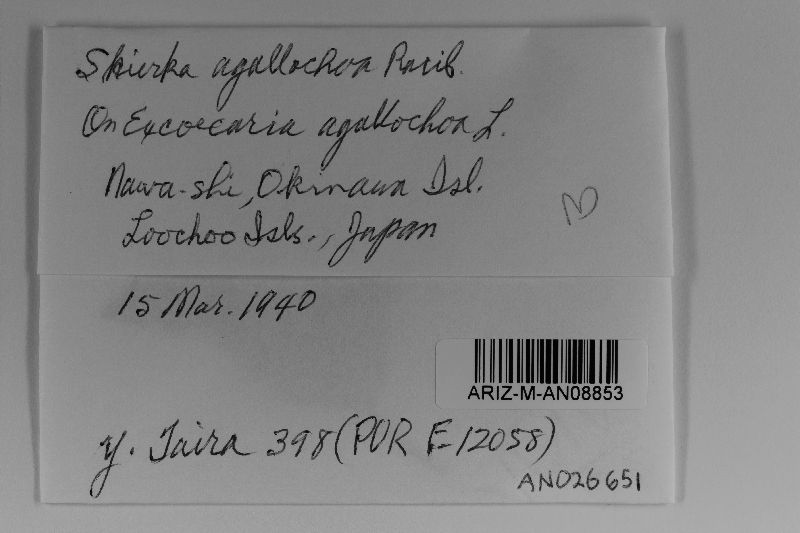 Skierka agallochoa Racib.
On Excoecaria agallochoa L.
Nawa-shi, Okinawa Isl.
Loochoo Isls., Japan
15 Mar. 1940
ARIZ-M-AN08853
Y. Taira 398 (PUR F 12058)
AN026651